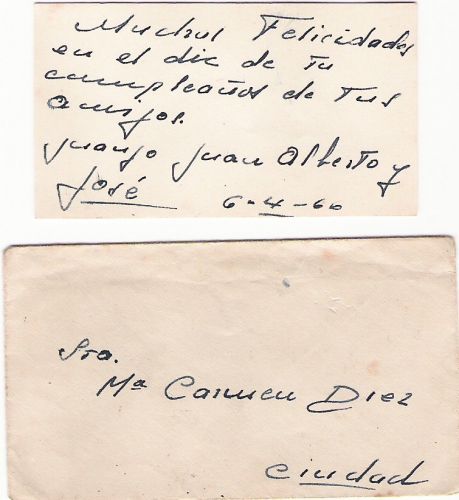 Muchas Felicidades
en el dia de Tu
cumpleaños de Tus
amijos.
Juanjo Juan Alberto y
José 6-4-60
Sra.
Mª Carmen Diez
Ciudad